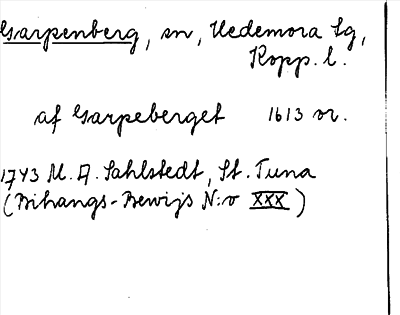 Garpenberg, sn, Hedemora Lg,
Kopp. l.
af Garpeberget 1613 or.
1743 M. A. Sahlstedt, St. Tuna
(Bihangs-Bewijs N:o XXX)